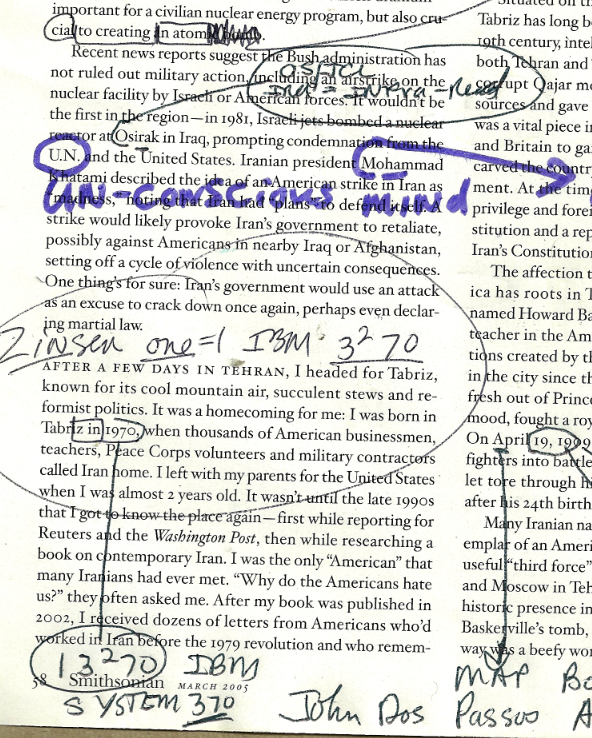 important for a civilian nuclear energy program, but also cru-
cial to creating an atom
Recent news reports suggest the Bush administration has
not ruled out military action, including an airstrike on the
nuclear facility by Israeli or American forces. It wouldn't be
the first in the region—in 1981, Israeli jets bombed a nuclear
reactor at Osirak in Iraq, prompting condemnation from the
U.N. and the United States. Iranian president Mohammad
Khatami described the idea of an American strike in Iran as
"madness," noting that Iran had "plans" to defend itself. A
strike would likely provoke Iran's government to retaliate,
possibly against Americans in nearby Iraq or Afghanistan,
setting off a cycle of violence with uncertain consequences.
One thing's for sure: Iran's government would use an attack
as an excuse to crack down once again, perhaps even declar-
ing martial law.
UN-conscious mind
one=1 IBM 3270
AFTER A FEW DAYS IN TEHRAN, I headed for Tabriz,
known for its cool mountain air, succulent stews and re-
formist politics. It was a homecoming for me: I was born in
Tabriz in 1970, when thousands of American businessmen,
teachers, Peace Corps volunteers and military contractors
called Iran home. I left with my parents for the United States
when I was almost 2 years old. It wasn't until the late 1990s
that I got to know the place again—first while reporting for
Reuters and the Washington Post, then while researching a
book on contemporary Iran. I was the only "American" that
many Iranians had ever met. "Why do the Americans hate
us?" they often asked me. After my book was published in
2002, I received dozens of letters from Americans who'd
worked in Iran before the 1979 revolution and who remem-
13270 IBM
58 Smithsonian MARCH 2005
SYSTEM 370
John Dos Passos
MAP
Situated on t
Tabriz has long b
19th century, intel
both Tehran and
corrupt Qajar mo
sources and gave
was a vital piece in
and Britain to ga
carved the country
ment. At the time
privilege and forei
stitution and a rep
Iran's Constitution
The affection t
ica has roots in T
named Howard Ba
teacher in the Am
tions created by th
in the city since th
fresh out of Prince
mood, fought a roy
On April 19, 1909
fighters into battle
let tore through h
after his 24th birth
Many Iranian na
emplar of an Ameri
useful "third force"
and Moscow in Teh
historic presence in
Baskerville's tomb,
way was a beefy wo